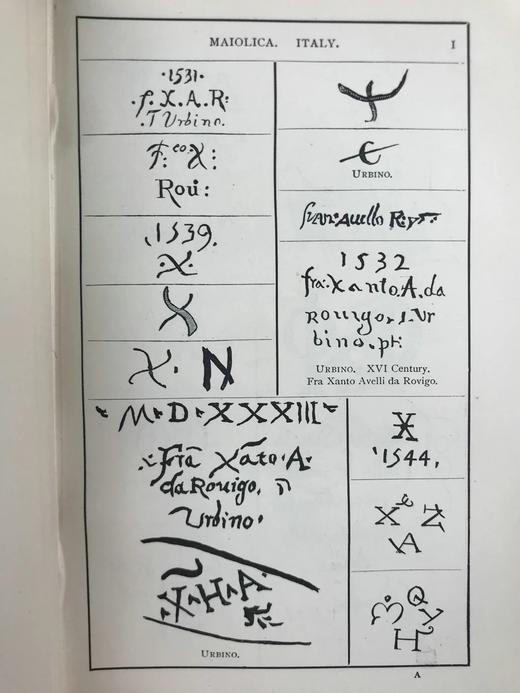 MAIOLICA. ITALY. 1
·1531·
·f. X. A. R:
·T Urbino.
F:co X:
Roui:
.1539.
·X·
X
X· N
URBINO.
1532
fra: Xanto. A. da
Rouigo, I. Ur
bino. pt:
URBINO. XVI Century.
Fra Xanto Avelli da Rovigo.
M·D·XXXIII
·Frā Xāto·A·
da Rouigo,
Urbino·
·X·H·A·
URBINO.
X
'1544,
X & Z
A
Q
Y
H
A